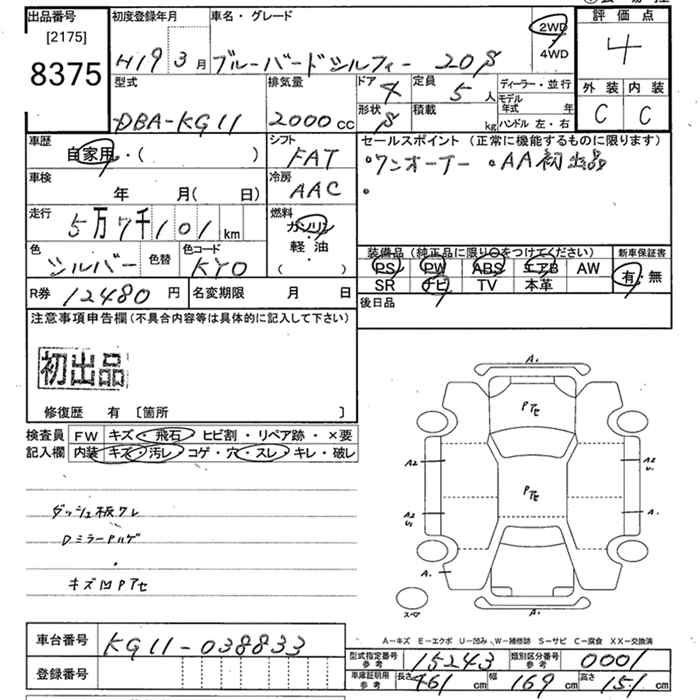 出品番号
[2175]
8375
初度登録年月
H19 3月
車名・グレード
ブルーバードシルフィー 20S
2WD
4WD
評価点
4
外装 内装
C C
型式
DBA-KG11
排気量
2000cc
ドア 4
形状 S
定員 5人
積載 kg
ディーラー・並行
モデル年式 年
ハンドル 左・右
車歴
自家用・( )
シフト
FAT
セールスポイント (正常に機能するものに限ります)
・ワンオーナー ・AA初出品
・
車検
年 月( 日)
冷房
AAC
走行
5万7千101km
燃料
ガソリン
・
軽油
( )
色
シルバー
色替
色コード
KY0
装備品 (純正品に限り○をつけてください)
PS PW ABS エアB AW
SR ナビ TV 本革
新車保証書
有・無
R券 12480円
名変期限 月 日
後日品
注意事項申告欄(不具合内容等は具体的に記入して下さい)
初出品
修復歴 有 [箇所 ]
検査員
記入欄
FW キズ・飛石・ヒビ割・リペア跡・×要
内装 キズ・汚レ・コゲ・穴・スレ・キレ・破レ
ダッシュ板ワレ
DミラーPハゲ
キズ凹Pアセ
A.
Pアセ
Pアセ
A2
A2
U1
A2
U.
A.
A.
A.
スペア
A-キズ E-エクボ U-凹み W-補修跡 S-サビ C-腐食 XX-交換済
車台番号 KG11-038833
登録番号
型式指定番号
参考
15243
類別区分番号
参考
0001
車庫証明用
参考
長さ 461cm 幅 169cm 高さ 151cm